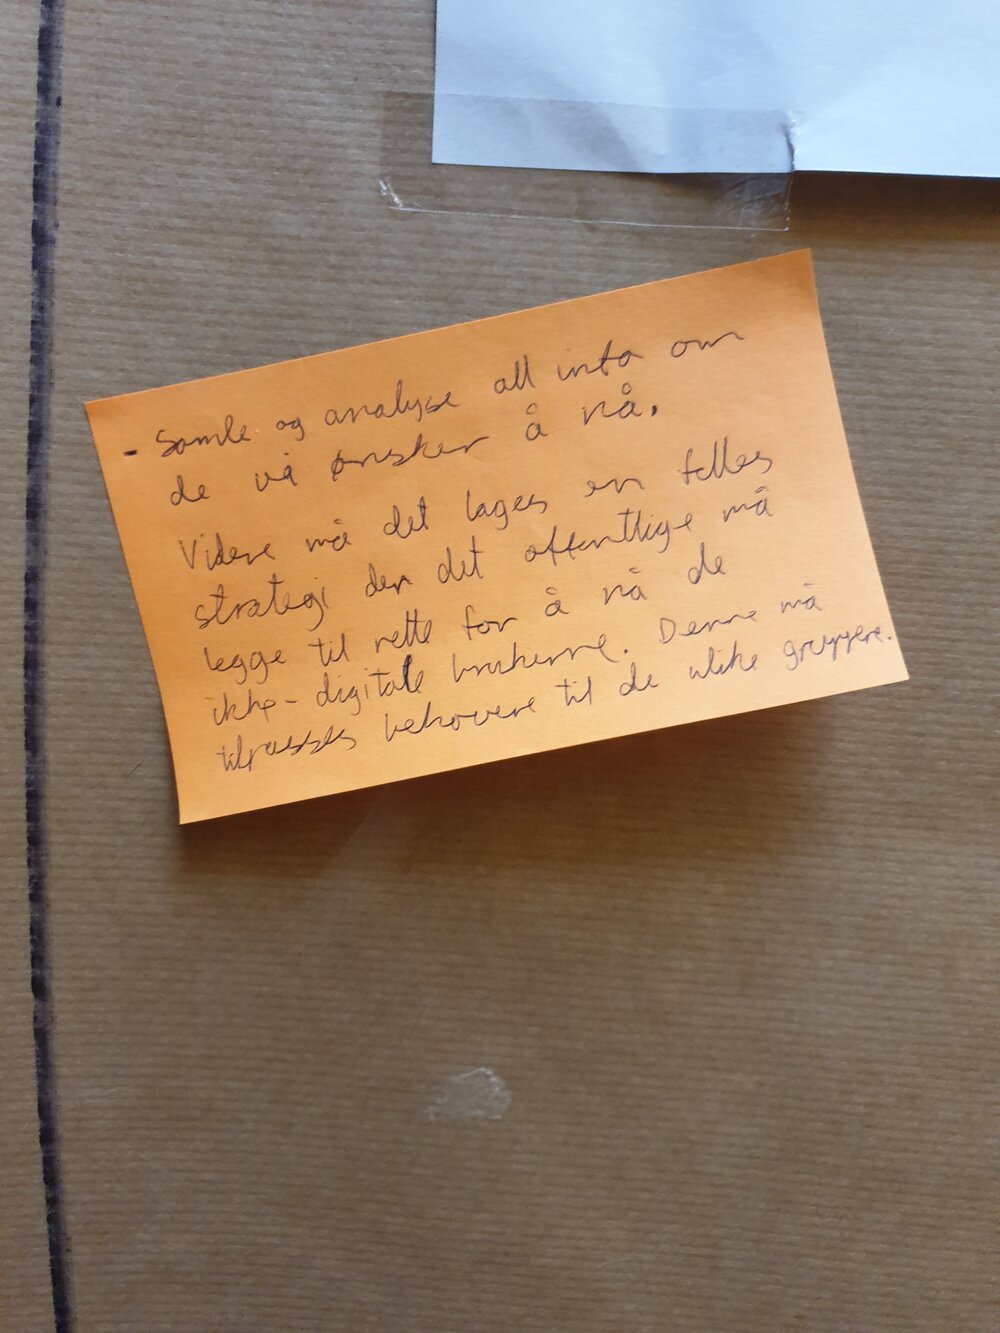 - Samle og analyse all info om
de vi ønsker å nå.
Videre må det lages en felles
strategi der det offentlige må
legge til rette for å nå de
ikke-digitale brukerne. Denne må
tilpasses behovene til de ulike gruppene.